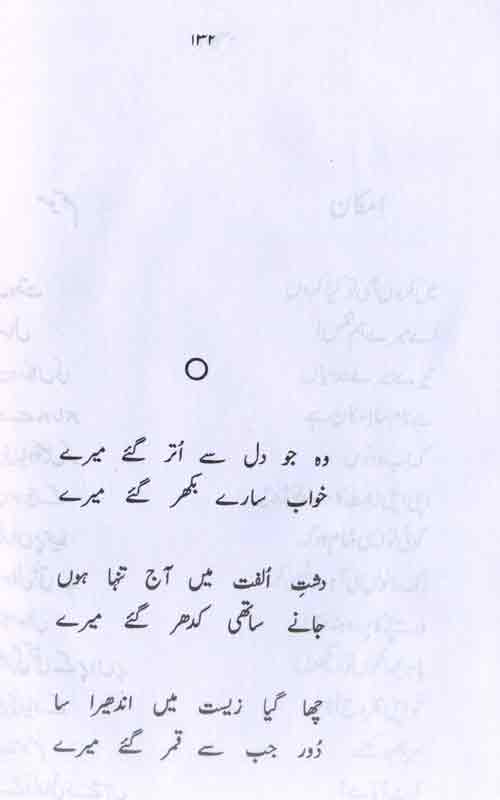 ۱۳۲
وہ جو دل سے اُتر گئے میرے
خواب سارے بکھر گئے میرے
دشتِ اُلفت میں آج تنہا ہوں
جانے ساتھی کدھر گئے میرے
چھا گیا زیست میں اندھیرا سا
دُور جب سے قمر گئے میرے